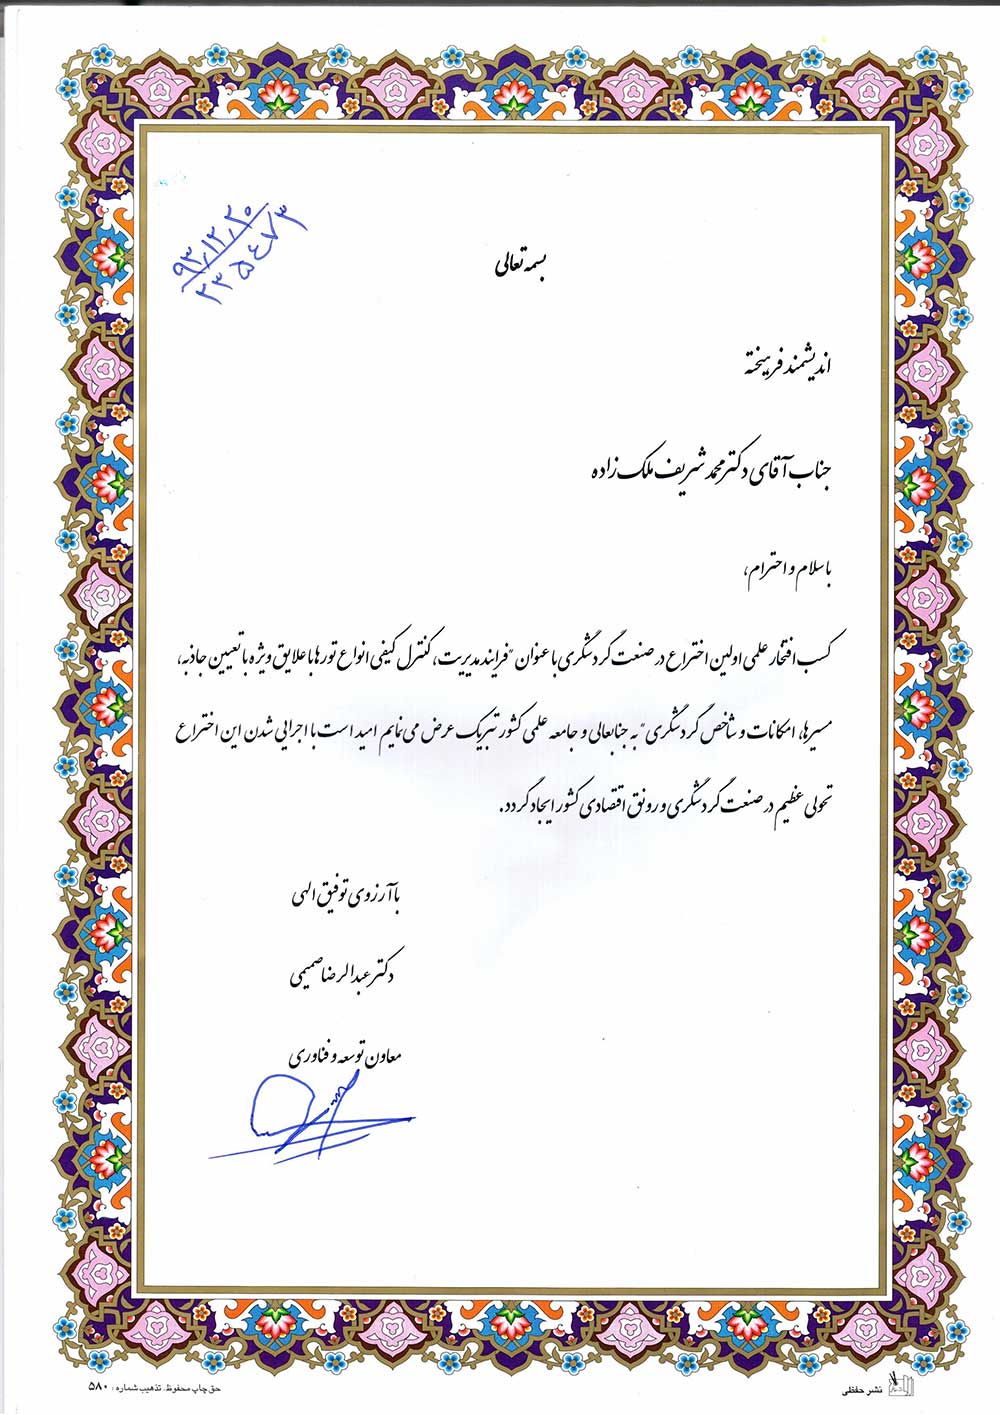 ۹۳٫۱۲٫۲۰
۲۳۵۴۷۳
بسمه تعالی
اندیشمند فرهیخته
جناب آقای دکتر محمد شریف ملک زاده
با سلام و احترام،
کسب افتخار علمی اولین اختراع در صنعت گردشگری با عنوان "فرایند مدیریت، کنترل کیفی انواع تورها با علایق ویژه با تعیین جاذبه،
مسیرها، امکانات و شاخص گردشگری" به جنابعالی و جامعه علمی کشور تبریک عرض می نمایم امید است با اجرایی شدن این اختراع
تحولی عظیم در صنعت گردشگری و رونق اقتصادی کشور ایجاد گردد.
با آرزوی توفیق الهی
دکتر عبدالرضا صمیمی
معاون توسعه و فناوری
نشر حفظی
حق چاپ محفوظ. تذهیب شماره: ۵۸۰